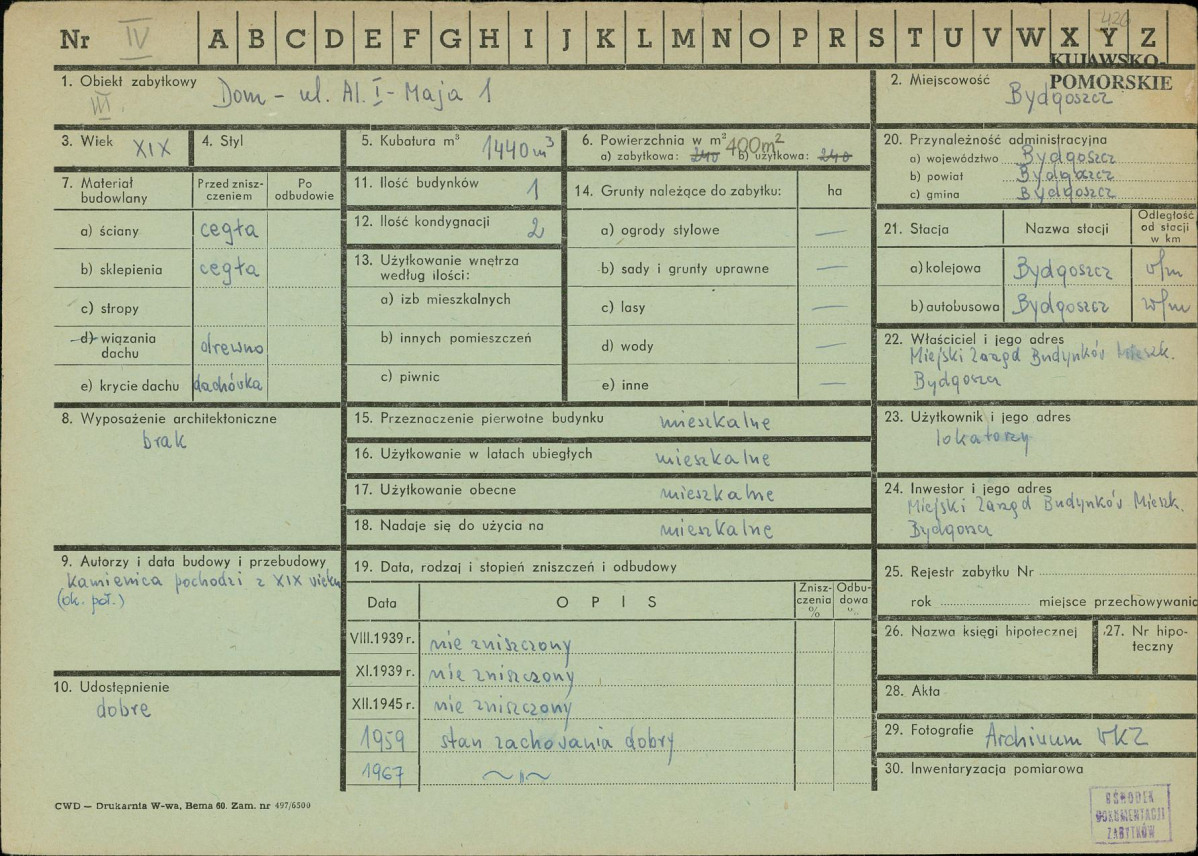 420
Nr IV A B C D E F G H I J K L M N O P R S T U V W X Y Z
KUJAWSKO-
POMORSKIE
1. Obiekt zabytkowy Dom - ul. Al. I - Maja 1
III.
2. Miejscowość Bydgoszcz
3. Wiek XIX
4. Styl
5. Kubatura m³ 1440 m³
6. Powierzchnia w m² 400 m²
a) zabytkowa: 240 b) użytkowa: 240
7. Materiał budowlany
Przed zniszczeniem
Po odbudowie
a) ściany cegła
b) sklepienia cegła
c) stropy
d) wiązania dachu drewno
e) krycie dachu dachówka
8. Wyposażenie architektoniczne
brak
9. Autorzy i data budowy i przebudowy
kamienica pochodzi z XIX wieku
(ok. poł.)
10. Udostępnienie
dobre
11. Ilość budynków 1
12. Ilość kondygnacji 2
13. Użytkowanie wnętrza
według ilości:
a) izb mieszkalnych
b) innych pomieszczeń
c) piwnic
14. Grunty należące do zabytku: ha
a) ogrody stylowe —
b) sady i grunty uprawne —
c) lasy —
d) wody —
e) inne —
15. Przeznaczenie pierwotne budynku mieszkalne
16. Użytkowanie w latach ubiegłych mieszkalne
17. Użytkowanie obecne mieszkalne
18. Nadaje się do użycia na mieszkalne
19. Data, rodzaj i stopień zniszczeń i odbudowy
Data OPIS Zniszczenia % Odbudowa %
VIII.1939 r. nie zniszczony
XI.1939 r. nie zniszczony
XII.1945 r. nie zniszczony
1959 stan zachowania dobry
1967 ~ " ~
20. Przynależność administracyjna
a) województwo Bydgoszcz
b) powiat Bydgoszcz
c) gmina Bydgoszcz
21. Stacja Nazwa stacji Odległość od stacji w km
a) kolejowa Bydgoszcz w/m
b) autobusowa Bydgoszcz w/m
22. Właściciel i jego adres
Miejski Zarząd Budynków Mieszk.
Bydgoszcz
23. Użytkownik i jego adres
lokatorzy
24. Inwestor i jego adres
Miejski Zarząd Budynków Mieszk.
Bydgoszcz
25. Rejestr zabytku Nr
rok miejsce przechowywania
26. Nazwa księgi hipotecznej
27. Nr hipoteczny
28. Akta
29. Fotografie Archiwum WKZ
30. Inwentaryzacja pomiarowa
CWD — Drukarnia W-wa, Bema 60. Zam. nr 497/6500
OŚRODEK
DOKUMENTACJI
ZABYTKÓW